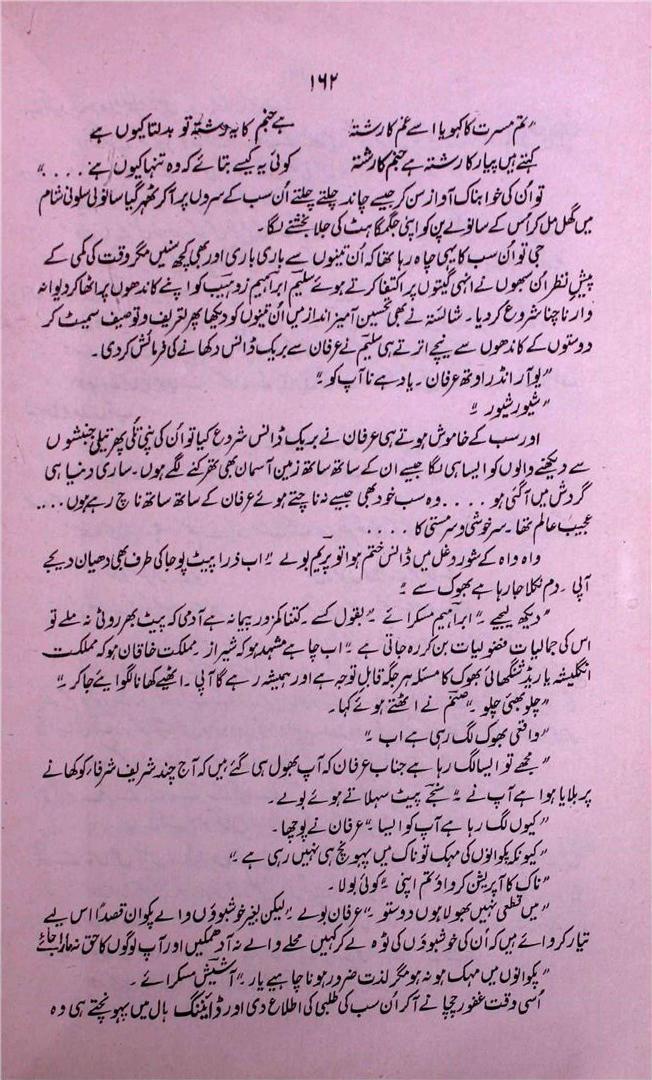 ۱۶۲
"تم مسرت کا کہو یا اسے غم کا رشتہ ہے جنم کا یہ رشتہ تو بدلتا کیوں ہے
کہتے ہیں پیار کا رشتہ ہے جنم کا رشتہ کوئی یہ کیسے بتائے کہ وہ تنہا کیوں ہے ۔۔۔۔"
تو اُن کی خوابناک آواز سن کر جیسے چاند چلتے چلتے اُن سب کے سروں پر آکر ٹھہر گیا سانولی سلونی شام
میں گھل مل کر اُس کے سانولے پن کو اپنی جگمگاہٹ کی جلا بخشنے لگا۔
جی تو اُن سب کا یہی چاہ رہا تھا کہ اُن تینوں سے باری باری اور بھی کچھ سنیں مگر وقت کی کمی کے
پیشِ نظر اُن سبھوں نے انہی گیتوں پر اکتفا کرتے ہوئے سلیم ابراہیم زوہیب کو اپنے کاندھوں پر اٹھا کر دیوانہ
وار ناچنا شروع کر دیا۔ شائستہ نے بھی تحسین آمیز انداز میں اُن تینوں کو دیکھا پھر تعریف و توصیف سمیٹ کر
دوستوں کے کاندھوں سے نیچے اترتے ہی سلیم نے عرفان سے بریک ڈانس دکھانے کی فرمائش کر دی۔
"یو آر انڈر اوتھ عرفان۔ یاد ہے نا آپ کو۔"
"شیور شیور۔"
اور سب کے خاموش ہوتے ہی عرفان نے بریک ڈانس شروع کیا تو اُن کی نپی تُلی پھرتیلی جنبشوں
سے دیکھنے والوں کو ایسا ہی لگا جیسے ان کے ساتھ ساتھ زمین آسمان بھی تھرکنے لگے ہوں۔ ساری دنیا ہی
گردش میں آگئی ہو ۔۔۔۔ وہ سب خود بھی جیسے نہ ناچتے ہوئے عرفان کے ساتھ ساتھ ناچ رہے ہوں ۔۔۔۔
عجیب عالم تھا۔ سرخوشی و سرمستی کا ۔۔۔۔۔
واہ واہ کے شور و غل میں ڈانس ختم ہوا تو پریم بولے "اب ذرا پیٹ پوجا کی طرف بھی دھیان دیجے
آپی۔ دم نکلا جا رہا ہے بھوک سے۔"
"دیکھ لیجیے۔" ابراہیم مسکرائے۔ "بقول کسے۔ کتنا کمزور پیمانہ ہے آدمی کہ پیٹ بھر روٹی نہ ملے تو
اس کی جمالیات فضولیات بن کر رہ جاتی ہے۔ "اب چاہے مشہد ہو کہ شیراز۔ مملکت خاقان ہو کہ مملکت
انگلیشہ یا ریڈ شنگھائی بھوک کا مسئلہ ہر جگہ قابلِ توجہ ہے اور ہمیشہ رہے گا آپی۔ اٹھیے کھانا لگوائیے جا کر۔"
"چلو بھئی چلو۔" صنم نے اٹھتے ہوئے کہا۔
"واقعی بھوک لگ رہی ہے اب۔"
"مجھے تو ایسا لگ رہا ہے جناب عرفان کہ آپ بھول ہی گئے ہیں کہ آج چند شریف شرفاء کو کھانے
پر بلایا ہوا ہے آپ نے۔" سنجے پیٹ سہلاتے ہوئے بولے۔
"کیوں لگ رہا ہے آپ کو ایسا۔" عرفان نے پوچھا۔
"کیونکہ پکوانوں کی مہک تو ناک میں پہونچ ہی نہیں رہی ہے۔"
"ناک کا آپریشن کرواؤ تم اپنی۔" کوئی بولا۔
"میں قطعی نہیں بھولا ہوں دوستو۔" عرفان بولے۔ "لیکن بغیر خوشبوؤں والے پکوان قصداً اس لیے
تیار کروائے ہیں کہ اُن کی خوشبوؤں کی ٹوہ لے کر کہیں محلے والے نہ آدھمکیں اور آپ لوگوں کا حق نہ مارا جائے
"پکوانوں میں مہک ہو نہ ہو مگر لذت ضرور ہونا چاہیے یار۔" آشیش مسکرائے۔
اُسی وقت غفور چچا نے آکر اُن سب کی طلبی کی اطلاع دی اور ڈائننگ ہال میں پہونچتے ہی وہ